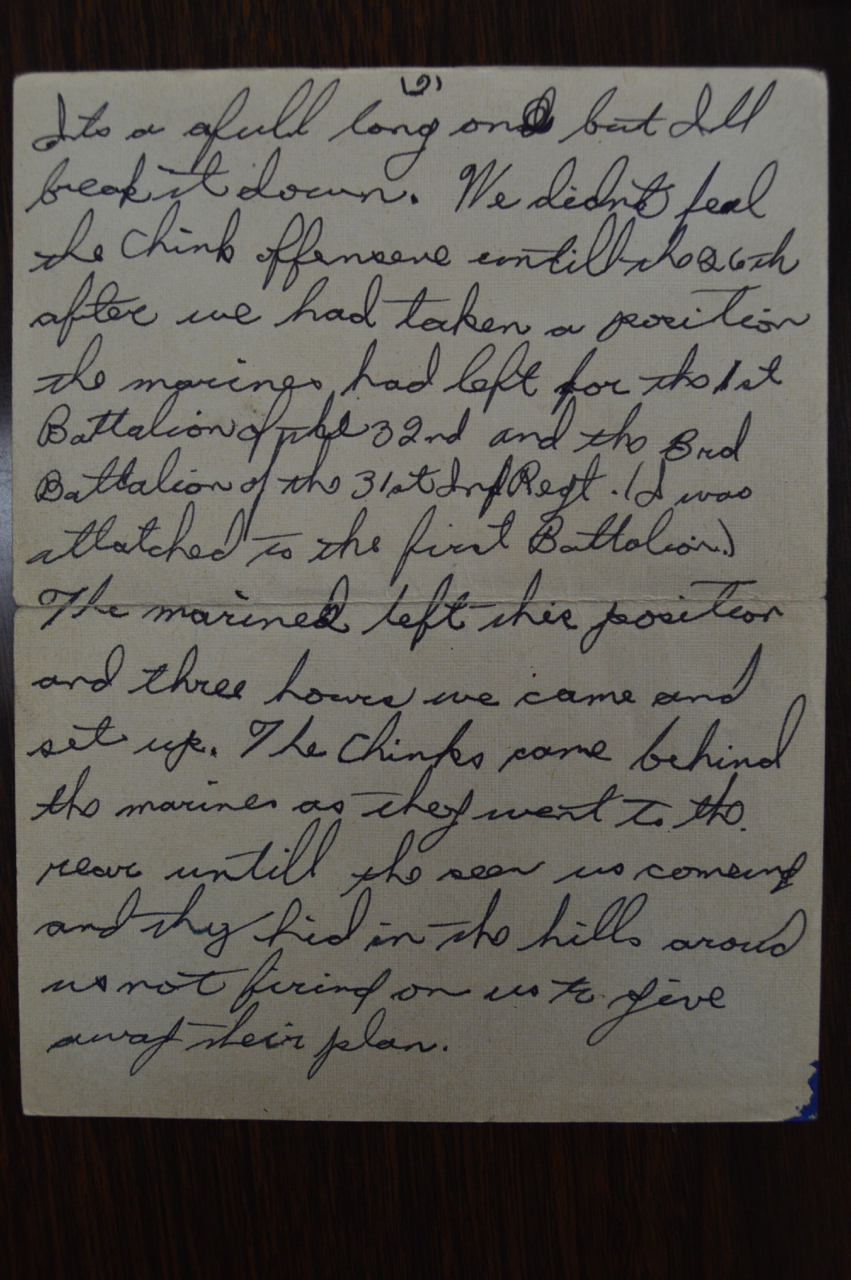 (2)
Its a afull long one but Ill
break it down. We didnt feal
the Chink offensene untill the 26th
after we had taken a position
the marines had left for the 1st
Battalion of the 32nd and the 3rd
Battalion of the 31st Inf Regt. (I was
attatched to the first Battalion.)
The marines left this position
and three hours we came and
set up. The Chinks came behind
the marines as they went to the
rear untill the seen us comeing
and thy hid in the hills aroud
us not firing on us to give
away their plan.